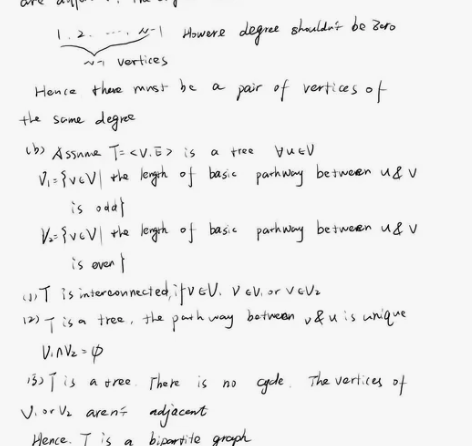 1. 2. ..... n-1 Howere degree shouldn't be zero
n-1 vertices
Hence there must be a pair of vertices of
the same degree
(b) Assume T=<V.E> is a tree ∀u∈V
V₁={v∈V| the length of basic parhway between u & v
is odd}
V₂={v∈V| the length of basic parhway between u & v
is even}
(1) T is interconnected, if v∈V. v∈V₁ or v∈V₂
(2) T is a tree, the path way between v & u is unique
V₁∩V₂=φ
(3) T is a tree. There is no cycle. The vertices of
V₁ or V₂ aren't adjacent
Hence. T is a bipartite graph